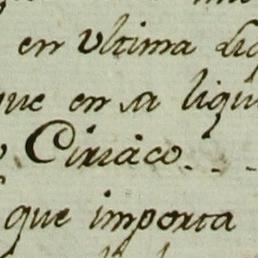 en ultima liq
que en sa liqu
Ciriaco
que importa